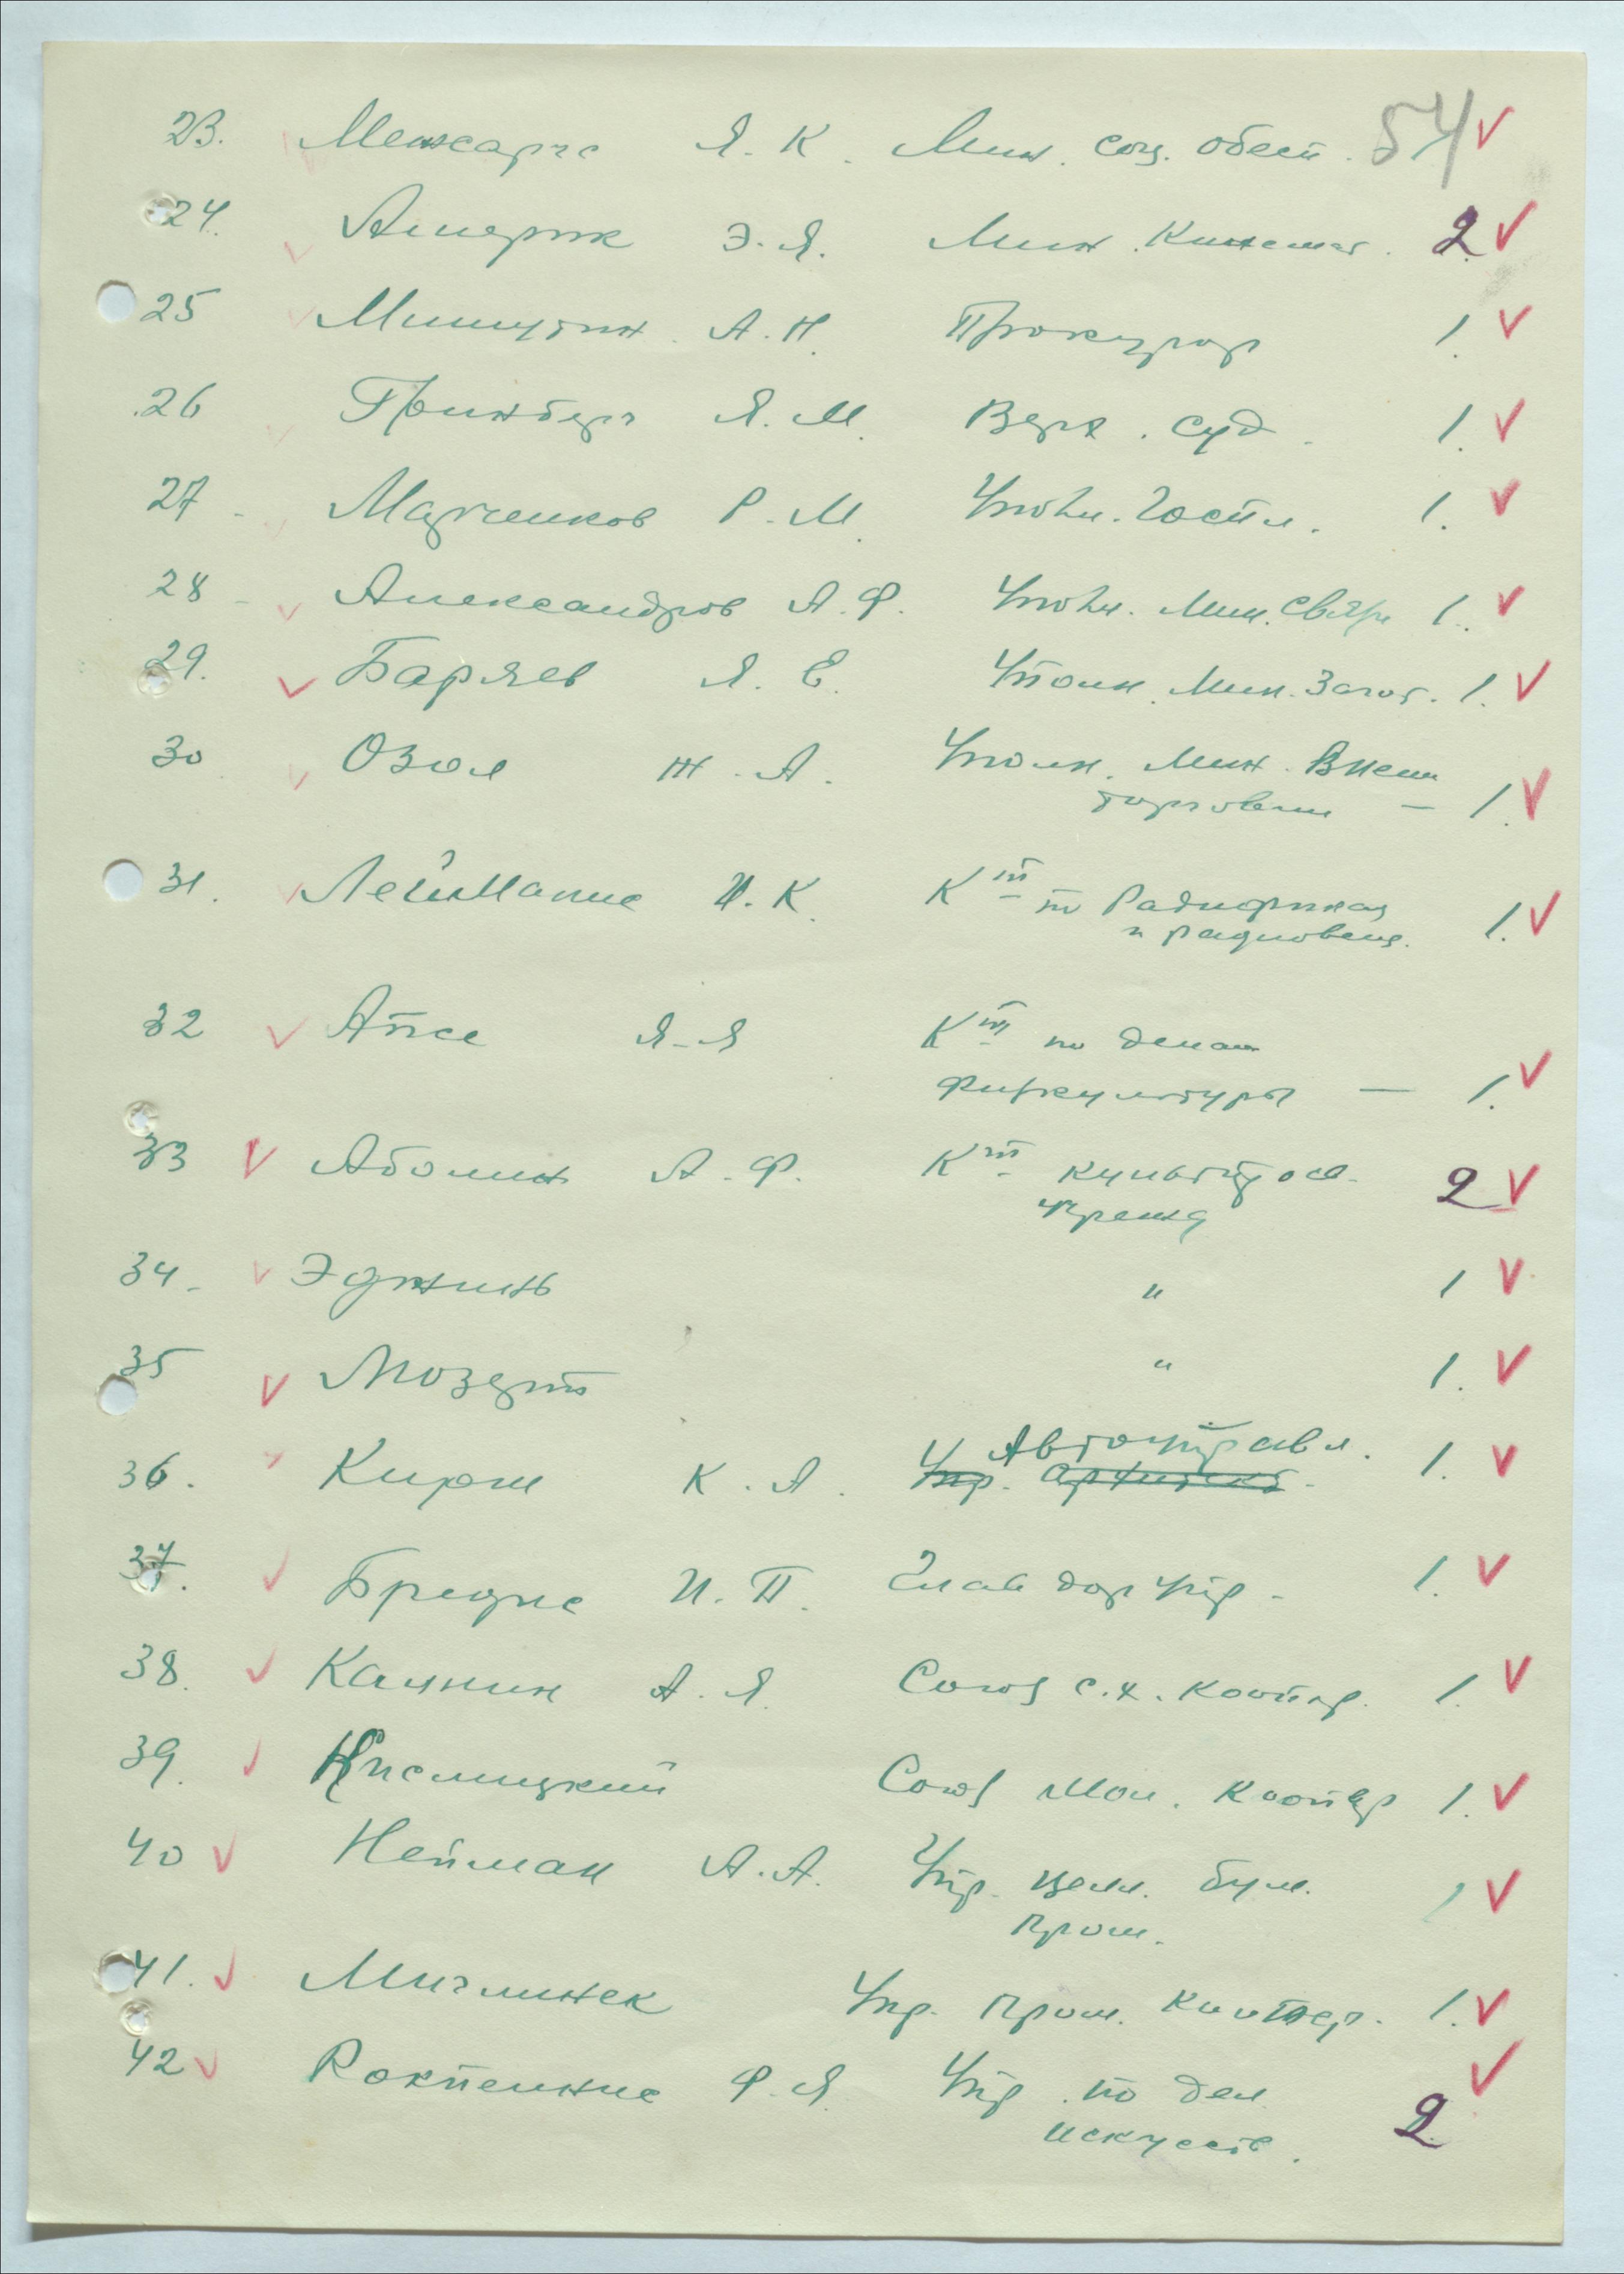 23. Межсаргс Я. К. Мин. соц. обесп. 54
24. Америк Э. Я. Мин. Кинемат. 2
25 Мишутин А. Н. Прокурор 1.
26 Гринберг Я. М. Верх. суд. 1.
27 - Марченков Р. М. Уполн. Госпл. 1.
28 - Александров А. Ф. Уполн. Мин. Связи 1.
29. Баряев Я. Е. Уполн. Мин. Загот. 1.
30 Озол Ж. А. Уполн. Мин. Внеш
торговли — 1.
31. Лейманис И. К. К-т по Радиофикац
и радиовещ. 1.
32 Апсе Я-Я К-т по делам
физкультуры — 1.
33 Аболин А. Ф. К-т культпросв.
учрежд 2
34. - Эджинь " 1
35 Мозерт " 1.
Автоуправл.
36. Кирш К. А. Упр. архитект. 1.
37. Бредис И. П. Глав дор упр - 1.
38. Калнин А. Я. Союз с.х. коопер. 1.
39. Кислицкий Союз Мол. Коопер 1.
40 Нейман А. А. Упр. целл. бум. 1
пром.
41. Миглинек Упр. пром. Коопер. 1.
42 Рокпелнис Ф. Я. Упр. по дел
искусств. 2